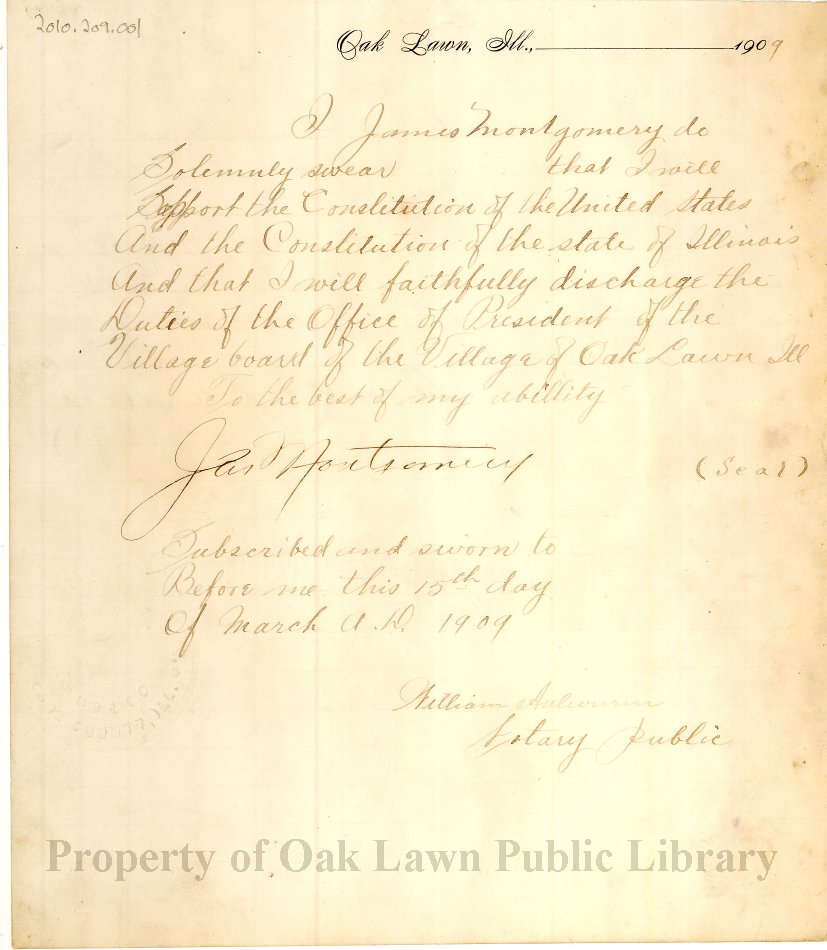 2010.209.001
Oak Lawn, Ill., 1909
I James Montgomery do
Solemnly swear that I will
Support the Constitution of the United States
And the Constitution of the state of Illinois
And that I will faithfully discharge the
Duties of the Office of President of the
Village board of the Village of Oak Lawn Ill
To the best of my abillity
Jas Montgomery (Seal)
Subscribed and sworn to
Before me this 15th day
Of March A.D. 1909
William
Notary Public
Property of Oak Lawn Public Library